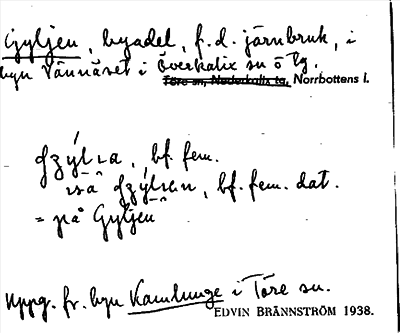 Gyljen, byadel, f.d. järnbruk, i
byn Vännäset i Överkalix sn o tg.
Töre sn, Nederkalix tg, Norrbottens l.
bf. fem.
bf. fem. dat.
= på Gyljen
Uppg. fr. byn Kamlunge i Töre sn.
EDVIN BRÄNNSTRÖM 1938.